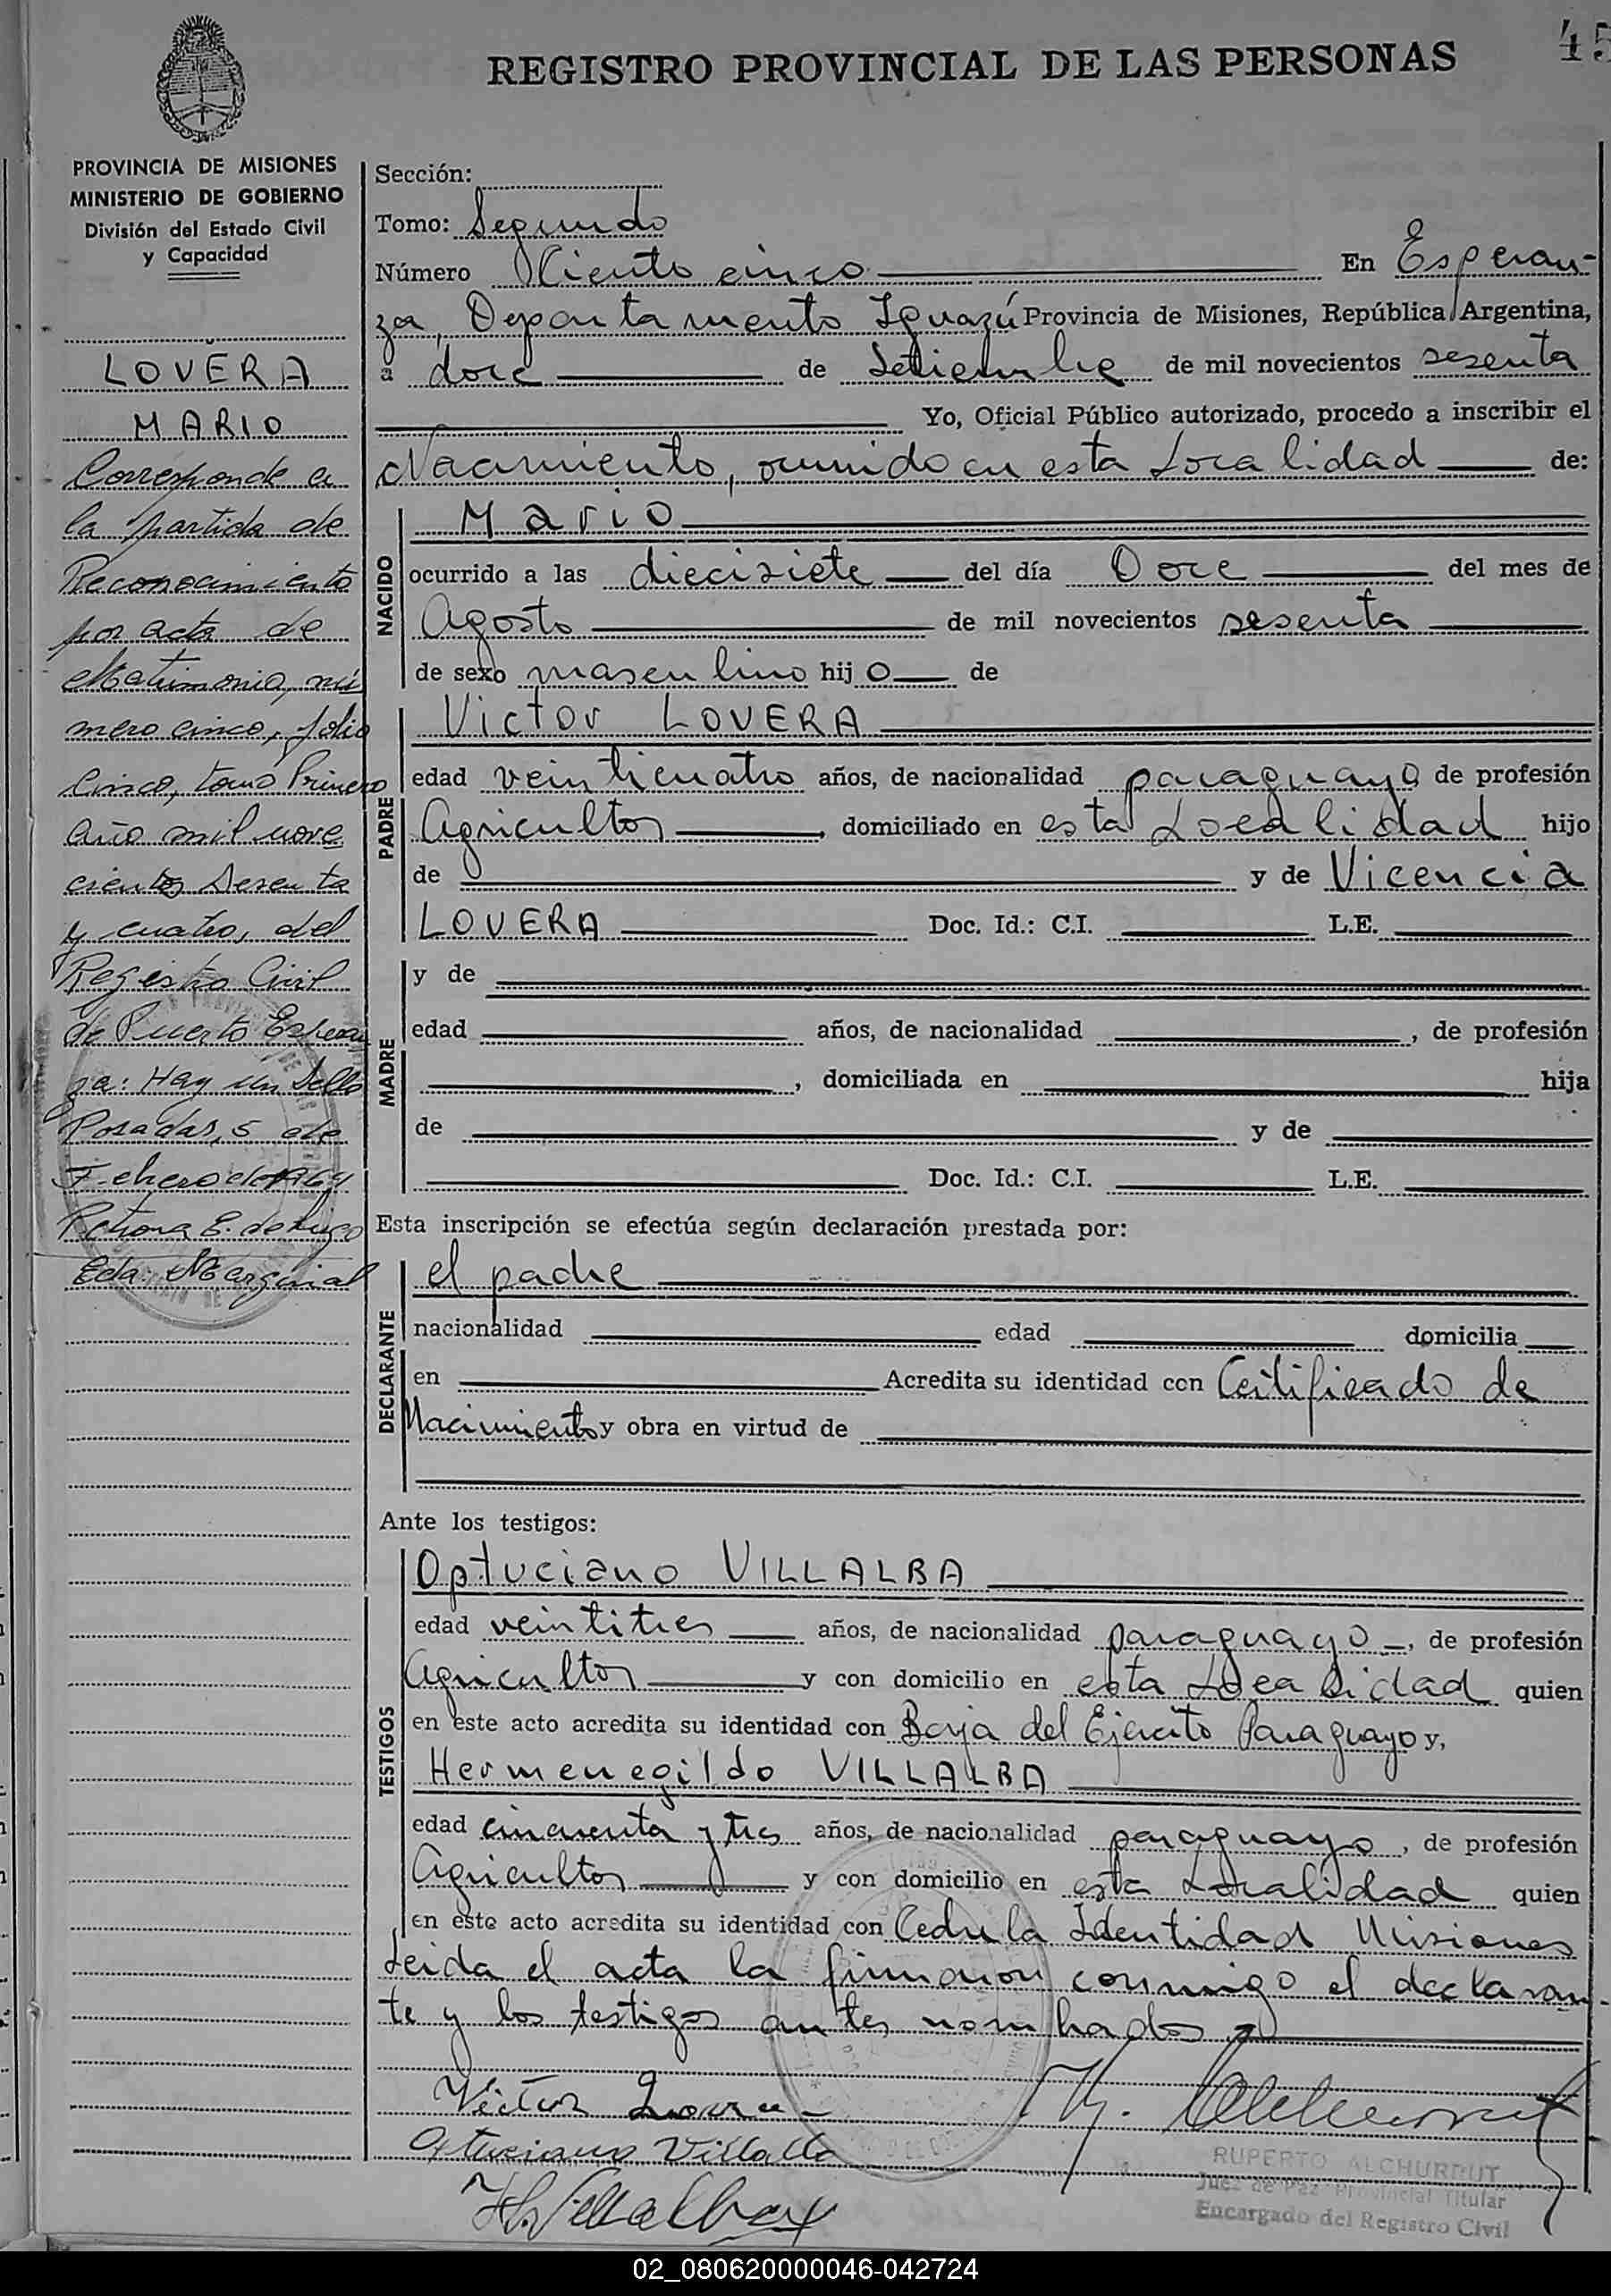 45
REGISTRO PROVINCIAL DE LAS PERSONAS
PROVINCIA DE MISIONES
MINISTERIO DE GOBIERNO
División del Estado Civil
y Capacidad
LOVERA
MARIO
Corresponde a
la partida de
Reconocimiento
por acta de
Matrimonio, nú
mero cinco, folio
Cinco, tomo Primero
año mil nove
cientos sesenta
y cuatro, del
Registro Civil
de Puerto Esperan
za: Hay un Sello
Posadas, 5 de
Febrero de 1964
E. de Lugo
Marginal
Sección:
Tomo: Segundo
Número Ciento cinco En Esperan-
za, Departamento Iguazú Provincia de Misiones, República Argentina,
a doce de Setiembre de mil novecientos sesenta
Yo, Oficial Público autorizado, procedo a inscribir el
Nacimiento, ocurrido en esta Localidad de:
NACIDO
Mario
ocurrido a las diecisiete del día Doce del mes de
Agosto de mil novecientos sesenta
de sexo masculino hijo de
PADRE
Victor LOVERA
edad veinticuatro años, de nacionalidad paraguayo de profesión
Agricultor, domiciliado en esta Localidad hijo
de y de Vicencia
LOVERA Doc. Id.: C.I. L.E.
MADRE
y de
edad años, de nacionalidad , de profesión
, domiciliada en hija
de y de
Doc. Id.: C.I. L.E.
Esta inscripción se efectúa según declaración prestada por:
DECLARANTE
el padre
nacionalidad edad domicilia
en Acredita su identidad con Certificado de
Nacimiento y obra en virtud de
Ante los testigos:
TESTIGOS
Optuciano VILLALBA
edad veintitres años, de nacionalidad paraguayo, de profesión
Agricultor y con domicilio en esta Localidad quien
en este acto acredita su identidad con Baja del Ejercito Paraguayo y,
Hermenegildo VILLALBA
edad cincuenta y tres años, de nacionalidad paraguayo, de profesión
Agricultor y con domicilio en esta Localidad quien
en este acto acredita su identidad con Cedula Identidad Misiones
Leida el acta la firmaron conmigo el declaran-
te y los testigos antes nombrados
Victor Lovera
Optuciano Villalba
H. Villalba
RUPERTO ALCHURRUT
Juez de Paz Provincial Titular
Encargado del Registro Civil
02_080620000046-042724